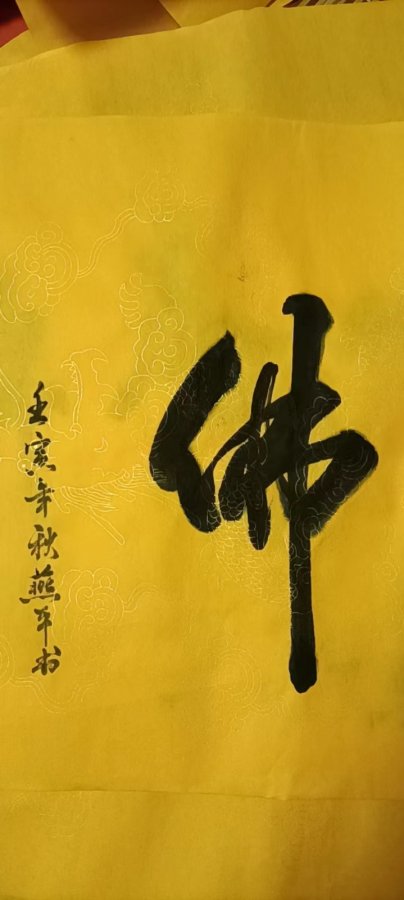 佛
壬寅年秋燕平书